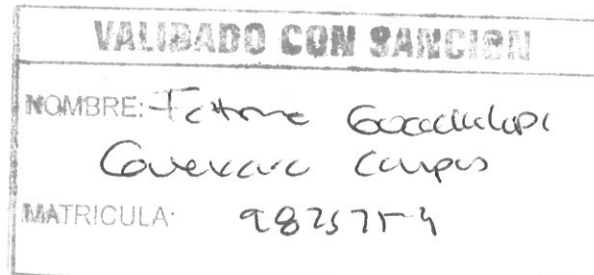 VALIDADO CON SANCION
NOMBRE: Fatima Guadalupe
Guevara Campos
MATRICULA: